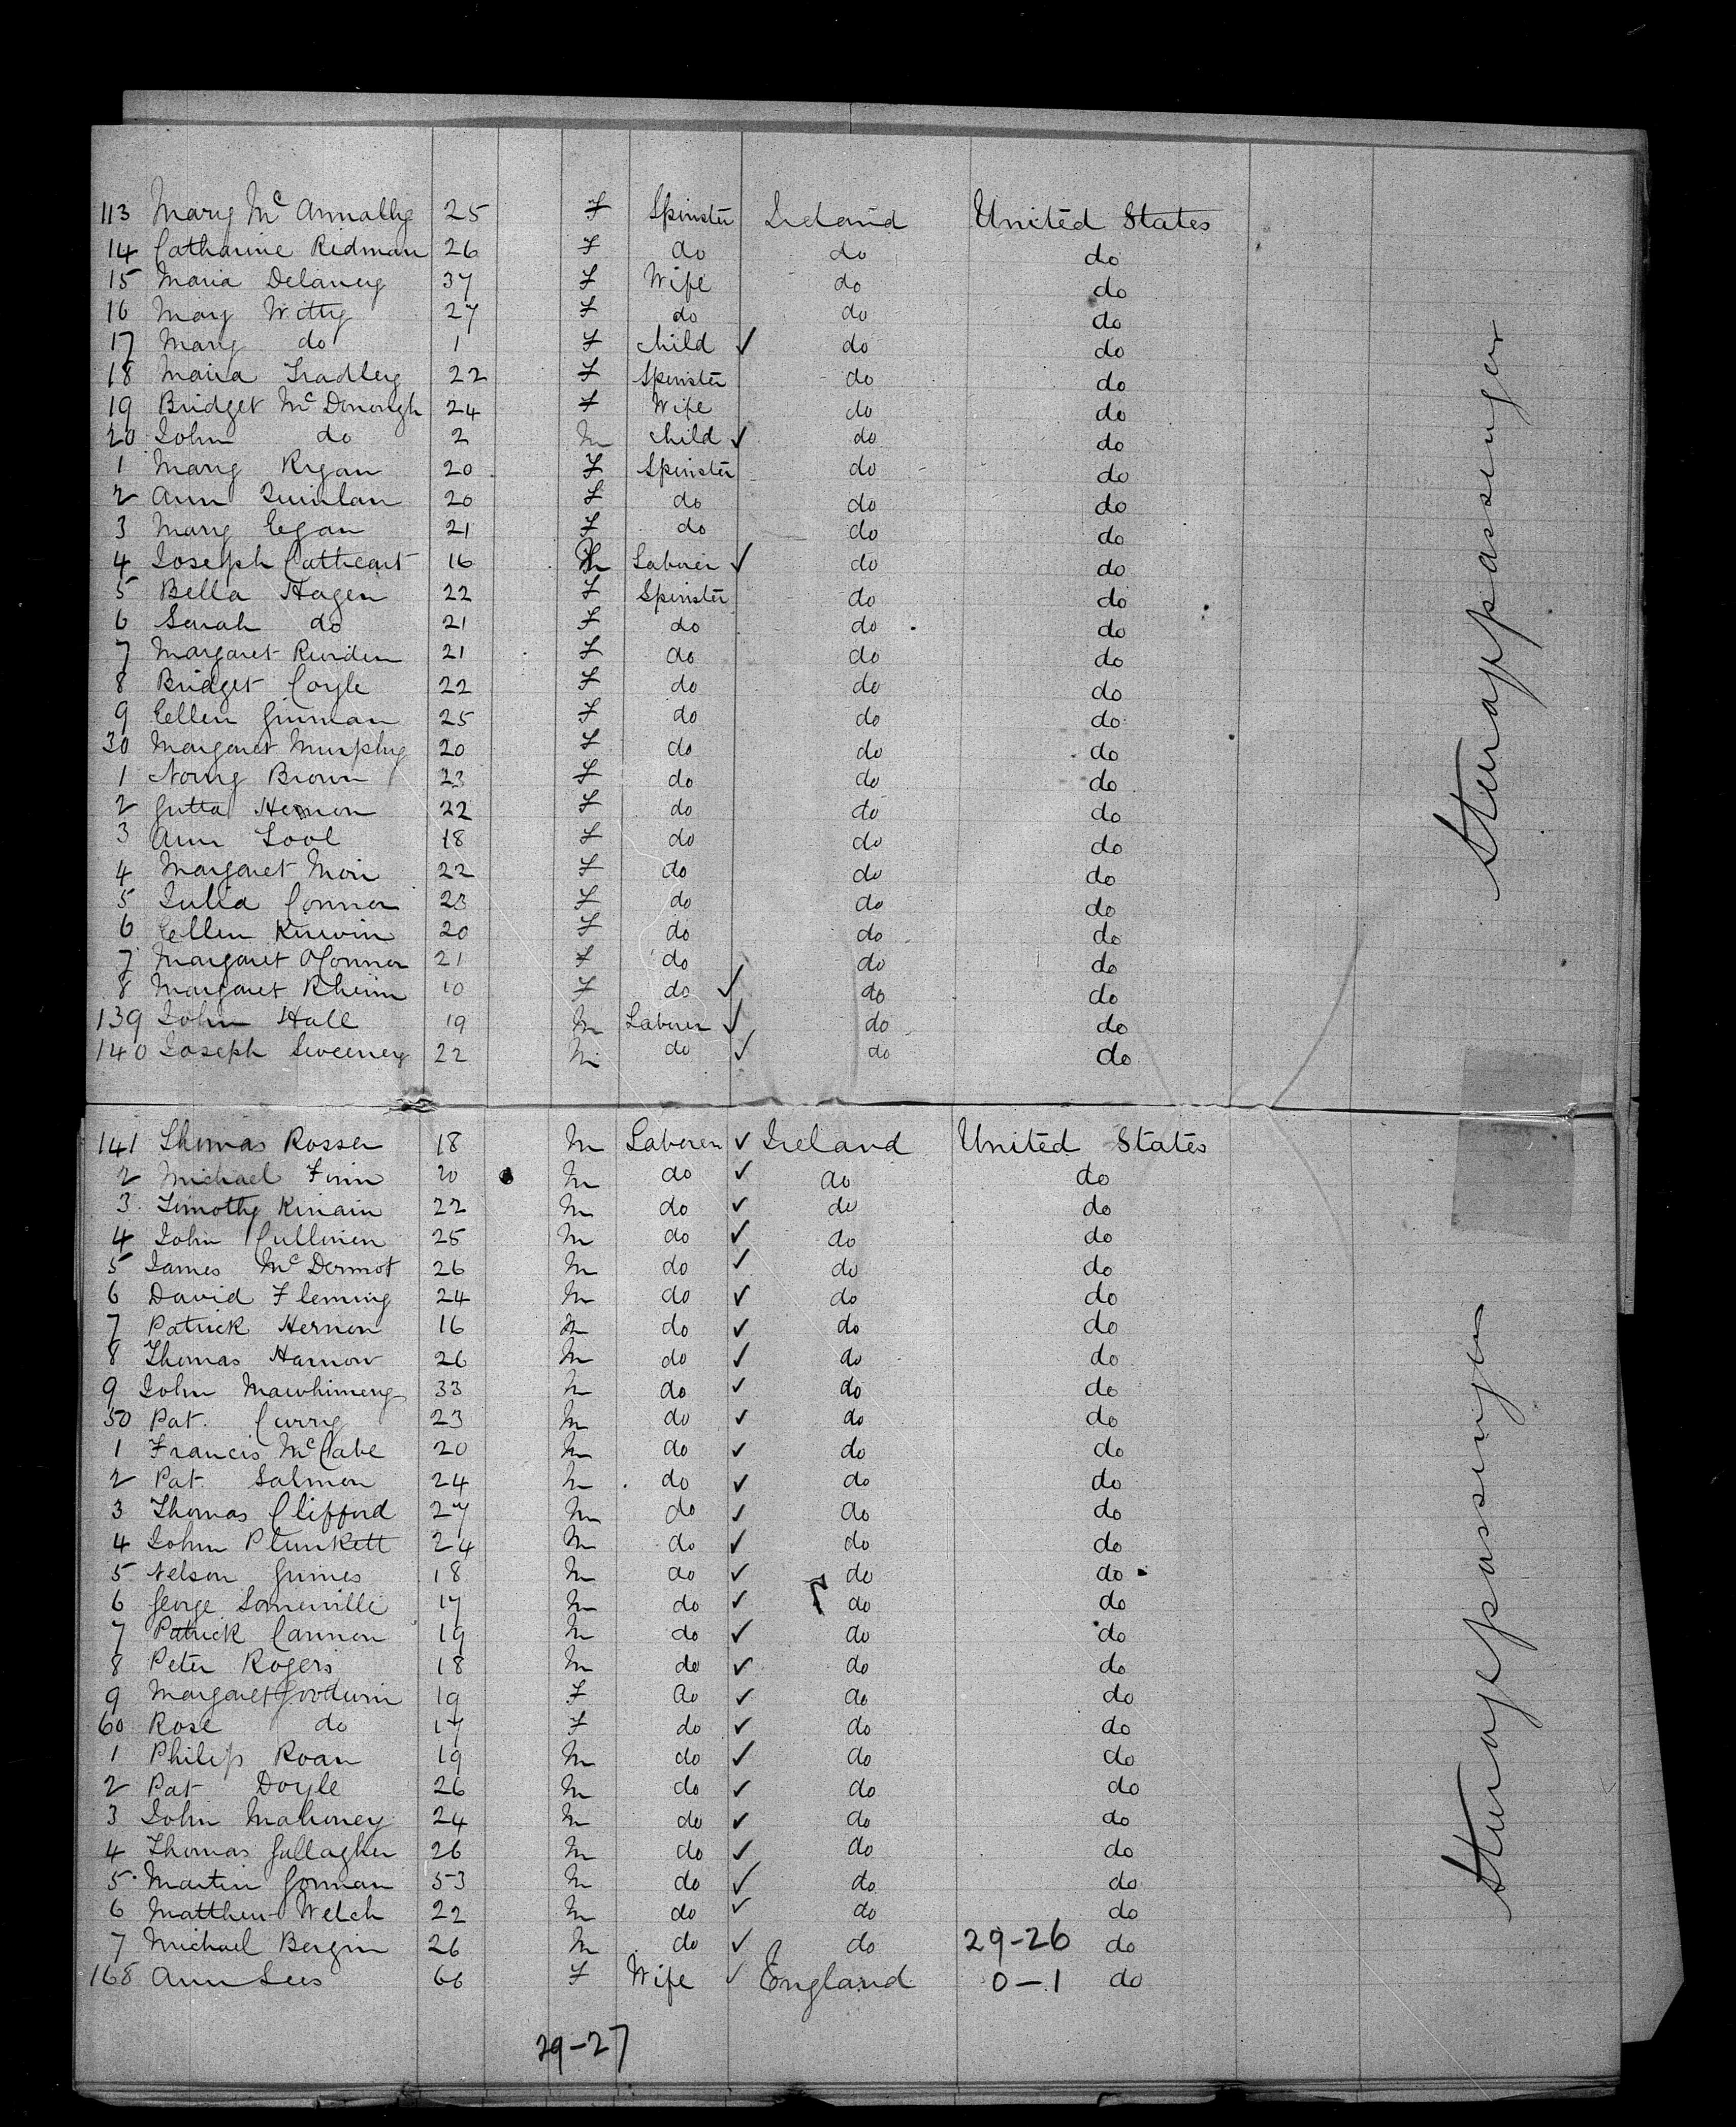 113 Mary Mc Annally 25 F Spinster Ireland United States
14 Catharine Redman 26 F do do do
15 Maria Delaney 37 F Wife do do
16 Mary Witty 27 F do do do
17 Mary do 1 F Child ✓ do do
18 Maria Tradley 22 F Spinster do do
19 Bridget Mc Donough 24 F Wife do do
20 John do 2 M Child ✓ do do
1 Mary Regan 20 F Spinster do do
2 Ann Quinlan 20 F do do do
3 Mary Egan 21 F do do do
4 Joseph Cathcart 16 M Laborer ✓ do do
5 Bella Hagen 22 F Spinster do do
6 Sarah do 21 F do do do
7 Margaret 21 F do do do
8 Bridget Coyle 22 F do do do
9 Ellen 25 F do do do
30 Margaret Murphy 20 F do do do
1 Brown 23 F do do do
2 22 F do do do
3 Ann 18 F do do do
4 Margaret 22 F do do do
5 Julia Connor 23 F do do do
6 Ellen Kirwin 20 F do do do
7 Margaret OConnor 21 F do do do
8 Margaret 10 F do ✓ do do
139 John Hall 19 M Laborer ✓ do do
140 Joseph Sweeney 22 M do ✓ do do
141 Thomas Rosser 18 M Laborer ✓ Ireland United States
2 Michael Finn 20 M do ✓ do do
3 Timothy Kinain 22 M do ✓ do do
4 John Cullinen 25 M do ✓ do do
5 James Mc Dermot 26 M do ✓ do do
6 David Fleming 24 M do ✓ do do
7 Patrick Hernon 16 M do ✓ do do
8 Thomas 26 M do ✓ do do
9 John Mawhinney 33 M do ✓ do do
50 Pat. Curry 23 M do ✓ do do
1 Francis McCabe 20 M do ✓ do do
2 Pat. Salmon 24 M do ✓ do do
3 Thomas Clifford 27 M do ✓ do do
4 John Plunkett 24 M do ✓ do do
5 Nelson Grimes 18 M do ✓ do do
6 George Somerville 17 M do ✓ do do
7 Patrick Cannon 19 M do ✓ do do
8 Peter Rogers 18 M do ✓ do do
9 Margaret Goodwin 19 F do ✓ do do
60 Rose do 17 F do ✓ do do
1 Philip Roan 19 M do ✓ do do
2 Pat Doyle 26 M do ✓ do do
3 John Mahoney 24 M do ✓ do do
4 Thomas Gallagher 26 M do ✓ do do
5 Martin Gorman 53 M do ✓ do do
6 Matthew Welch 22 M do ✓ do do
7 Michael Bergin 26 M do ✓ do 29-26 do
168 Ann Lees 66 F Wife ✓ England 0-1 do
29-27
Steerage passenger
Steerage passenger